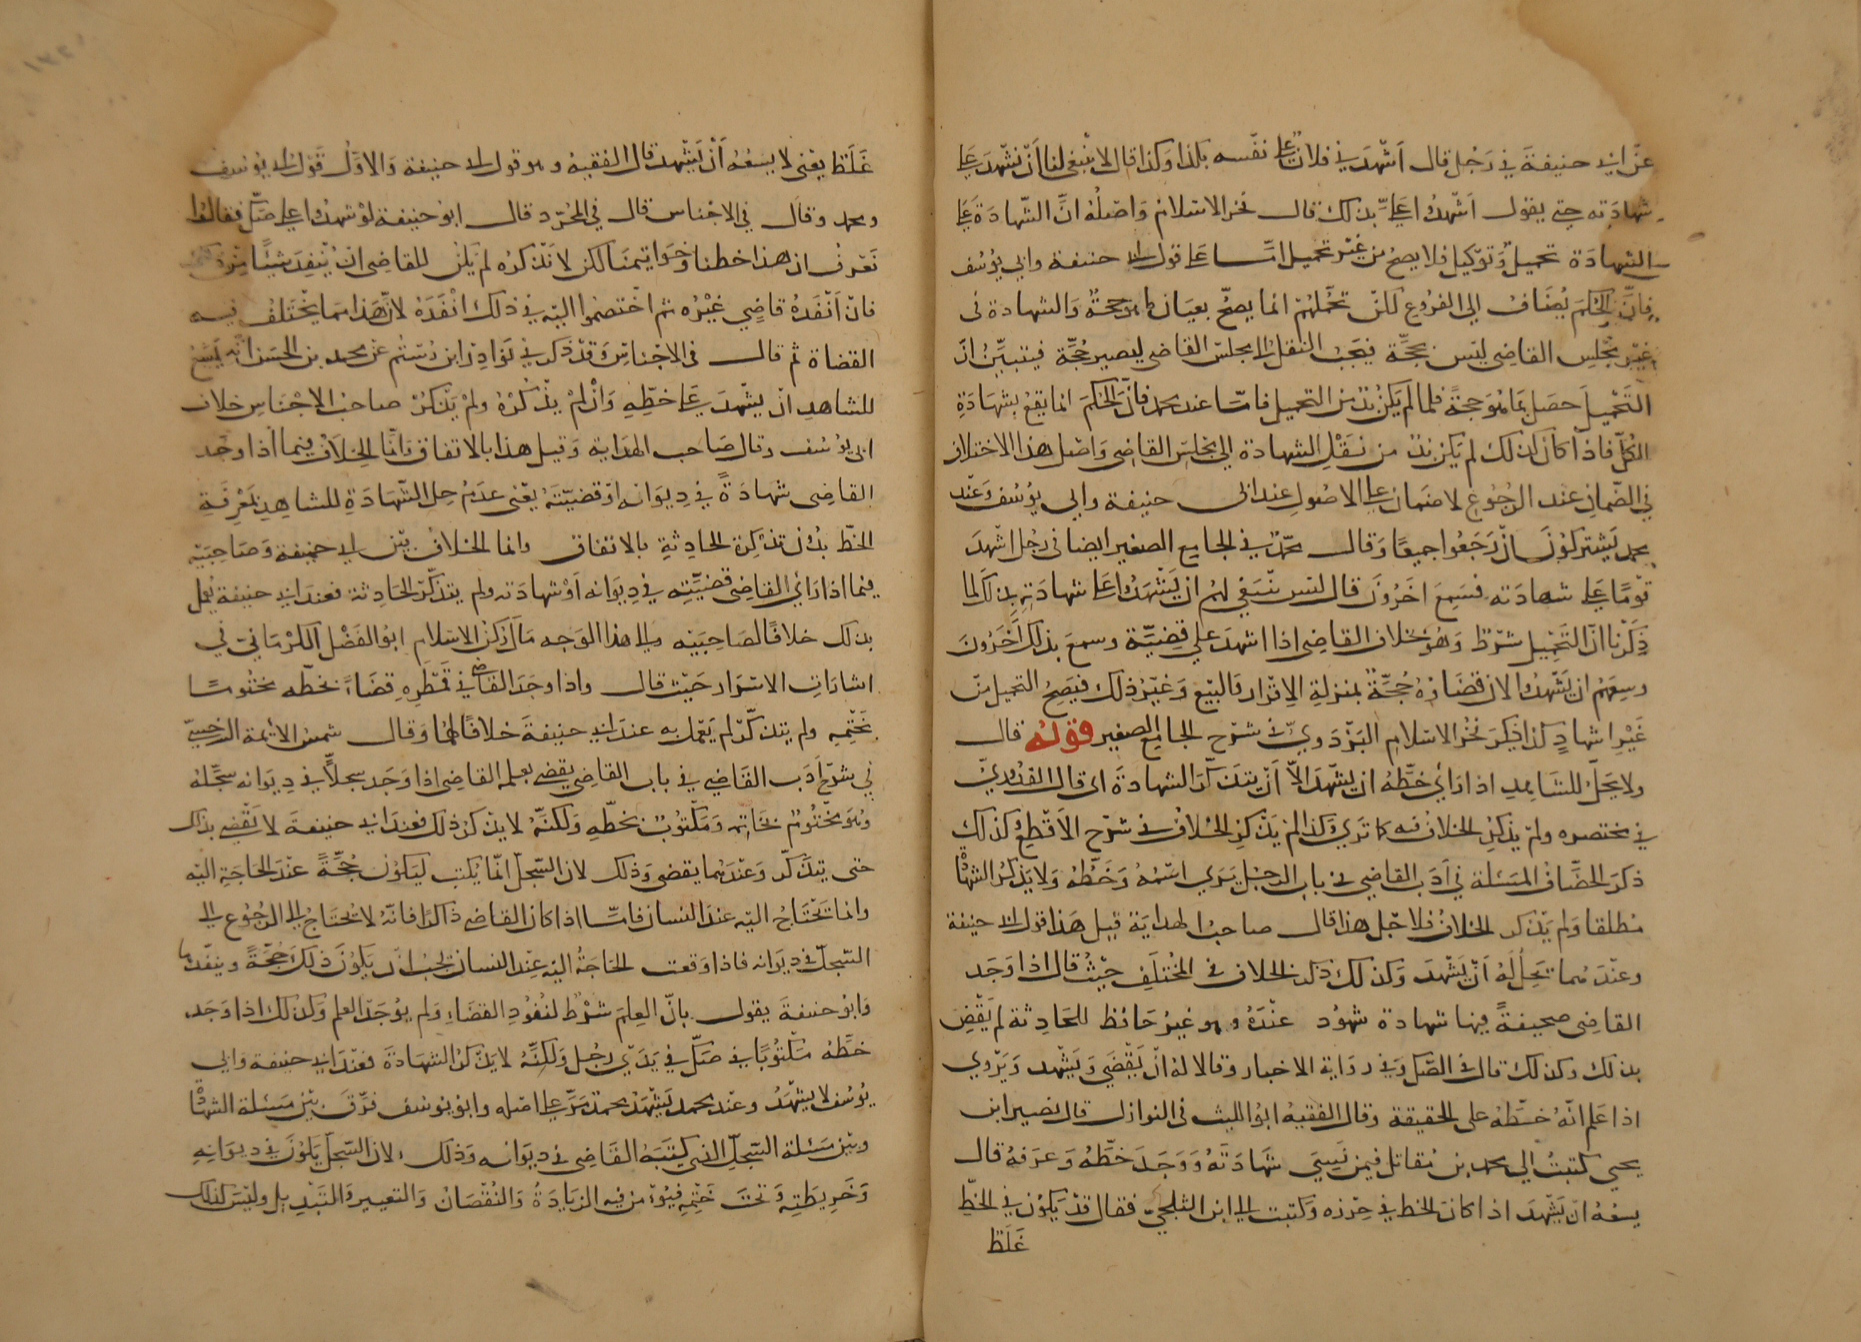 عن ابي حنيفة في رجل قال اشهدني فلان على نفسه بكذا وكذا قال لا ينبغي لنا ان نشهد على
شهادته حتى يقول اشهدوا علي بذلك قال فخر الاسلام واصله ان الشهادة على
الشهادة تحميل وتوكيل فلا يصح من غير تحميل اما على قول ابي حنيفة وابي يوسف
فان الحكم يضاف الى الفروع لكن تحملهم انما يصح بعيان ما هو حجة والشهادة في
غير مجلس القاضي ليس بحجة فيجب النقل الى مجلس القاضي ليصير حجة فيتبين ان
التحميل حصل بما هو حجة فلما لم يكن بد من التحميل فاما عند محمد فان الحكم انما يقع بشهادة
الكل فاذا كان كذلك لم يكن بد من نقل الشهادة الى مجلس القاضي واصل هذا الاختلاف
في الضمان عند الرجوع لا ضمان على الاصول عند ابي حنيفة وابي يوسف وعند
محمد يشتركون ان رجعوا جميعا وقال محمد في الجامع الصغير ايضا في رجل اشهد
قوما على شهادته فسمع اخرون قال ليس ينبغي لهم ان يشهدوا على شهادته بذلك لما
ذكرنا ان التحميل شرط وهو بخلاف القاضي اذا اشهد على قضية وسمع بذلك اخرون
وسعهم ان يشهدوا لان قضاءه حجة بمنزلة الاقرار والبيع وغير ذلك فيصح التحميل من
غير اشهاد كذا ذكر فخر الاسلام البزدوي في شرح الجامع الصغير قوله قال
ولا يحل للشاهد اذا راي خطه ان يشهد الا ان يتذكر الشهادة اي قال القدوري
في مختصره ولم يذكر الخلاف فيه كما ترى وكذا لم يذكر الخلاف في شرح الاقطع وكذلك
ذكر الخصاف المسئلة في ادب القاضي في باب الرجل يرى اسمه وخطه ولا يذكر الشهادة
مطلقا ولم يذكر الخلاف فلاجل هذا قال صاحب الهداية قيل هذا قول ابي حنيفة
وعندهما يحل له ان يشهد وكذلك ذكر الخلاف في المختلف حيث قال اذا وجد
القاضي صحيفة فيها شهادة شهود عنده وهو غير حافظ للحادثة لم يقض
بذلك وكذلك قال في الصك وفي رواية الاخبار وقالا له ان يقضي ويشهد ويروي
اذا علم انه خطه على الحقيقة وقال الفقيه ابو الليث في النوازل قال نصير ابن
يحيى كتبت الى محمد بن مقاتل فيمن نسي شهادته ووجد خطه وعرفه قال
يسعه ان يشهد اذا كان الخط في حرزه وكتبت الى ابن الثلجي فقال قد يكون في الخط
غلط
غلط يعني لا يسعه ان يشهد قال الفقيه وهو قول ابي حنيفة والاول قول ابي يوسف
ومحمد وقال في الاجناس قال في المجرد قال ابو حنيفة لو شهدوا على صك فقالوا
نعرف ان هذا خطنا وخواتيمنا لكن لا نذكره لم يكن للقاضي ان ينفذ شيئا من ذلك
فان انفذه قاضي غيره ثم اختصموا اليه في ذلك انفذه لان هذا مما يختلف فيه
القضاة ثم قال في الاجناس وقد ذكر في نوادر ابن رستم عن محمد بن الحسن انه يسع
للشاهد ان يشهد على خطه وان لم يذكره ولم يذكر صاحب الاجناس خلاف
ابي يوسف وقال صاحب الهداية وقيل هذا بالاتفاق وانما الخلاف فيما اذا وجد
القاضي شهادة في ديوانه او قضيته يعني عدم حل الشهادة للشاهد بمعرفة
الخط بدون تذكرة الحادثة بالاتفاق وانما الخلاف بين ابي حنيفة وصاحبيه
فيما اذا راي القاضي قضيته في ديوانه او شهادته ولم يتذكر الحادثة فعند ابي حنيفة لا يعمل
بذلك خلافا لصاحبيه والى هذا الوجه مال ركن الاسلام ابو الفضل الكرماني في
اشارات الاسرار حيث قال واذا وجد القاضي في قمطره قضاء بخطه مختوما
بختمه ولم يتذكر لم يعمل به عند ابي حنيفة خلافا لهما وقال شمس الائمة السرخسي
في شرح ادب القاضي في باب القاضي يقضي بعلمه القاضي اذا وجد سجلا في ديوانه سجله
وهو مختوم بخاتمه ومكتوب بخطه ولكنه لا يذكر ذلك فعند ابي حنيفة لا يقضي بذلك
حتى يتذكر وعندهما يقضي وذلك لان السجل انما يكتب ليكون حجة عند الحاجة اليه
وانما تحتاج اليه عند النسيان فاما اذا كان القاضي ذاكرا فانه لا يحتاج الى الرجوع الى
السجل في ديوانه فاذا وقعت الحاجة اليه عند النسيان يجب ان يكون ذلك حجة وينفذها
وابو حنيفة يقول بان العلم شرط لنفوذ القضاء ولم يوجد العلم وكذلك اذا وجد
خطه مكتوبا في صك في يدي رجل ولكنه لا يذكر الشهادة فعند ابي حنيفة وابي
يوسف لا يشهد وعند محمد يشهد محمد مر على اصله وابو يوسف فرق بين مسئلة الشهادة
وبين مسئلة السجل الذي كتبه القاضي في ديوانه وذلك لان السجل يكون في ديوانه
وخريطته وتحت ختمه فيؤمن فيه الزيادة والنقصان والتغيير والتبديل وليس كذلك